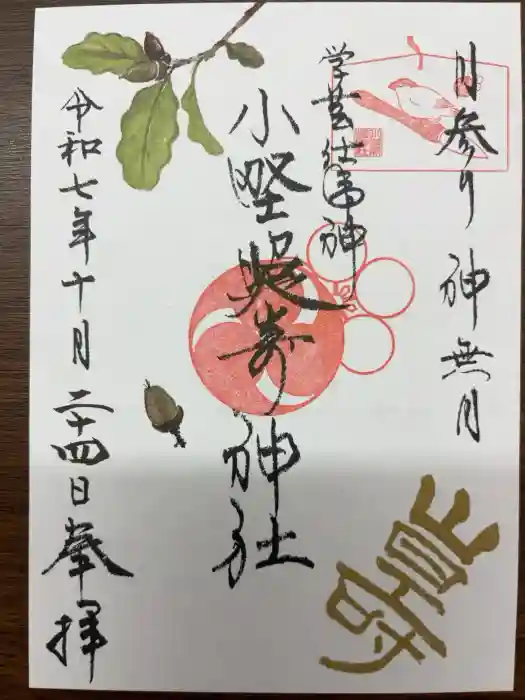 月参り 神無月
学芸仕事神
小野照崎神社
令和七年十月二十四日奉拝